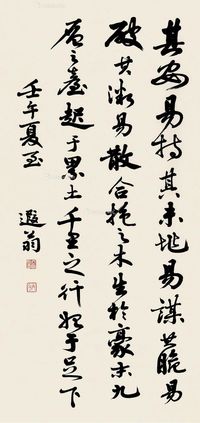 其安易持其未兆易謀其脆易
破其微易散合抱之木生於豪末九
层之臺起于累土千里之行始于足下
壬午夏至 遐翁